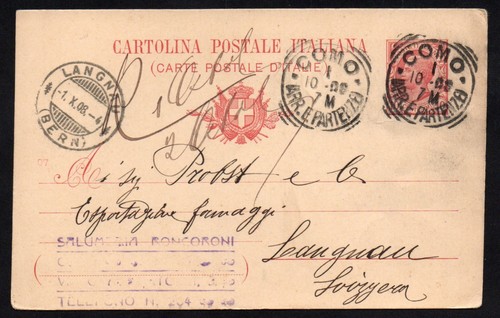 CARTOLINA POSTALE ITALIANA
(CARTE POSTALE D'ITALIE)
LANGNAU
-1.X.08.-4
(BERN)
COMO
1
10-08
7M
(ARR. E PARTENZE)
COMO
1
10-08
7M
(ARR. E PARTENZE)
07
A Sig Probst e C.
Esportazione formaggi
Langnau
Svizzera
SALUMERIA RONCORONI
TELEFONO N. 2,04